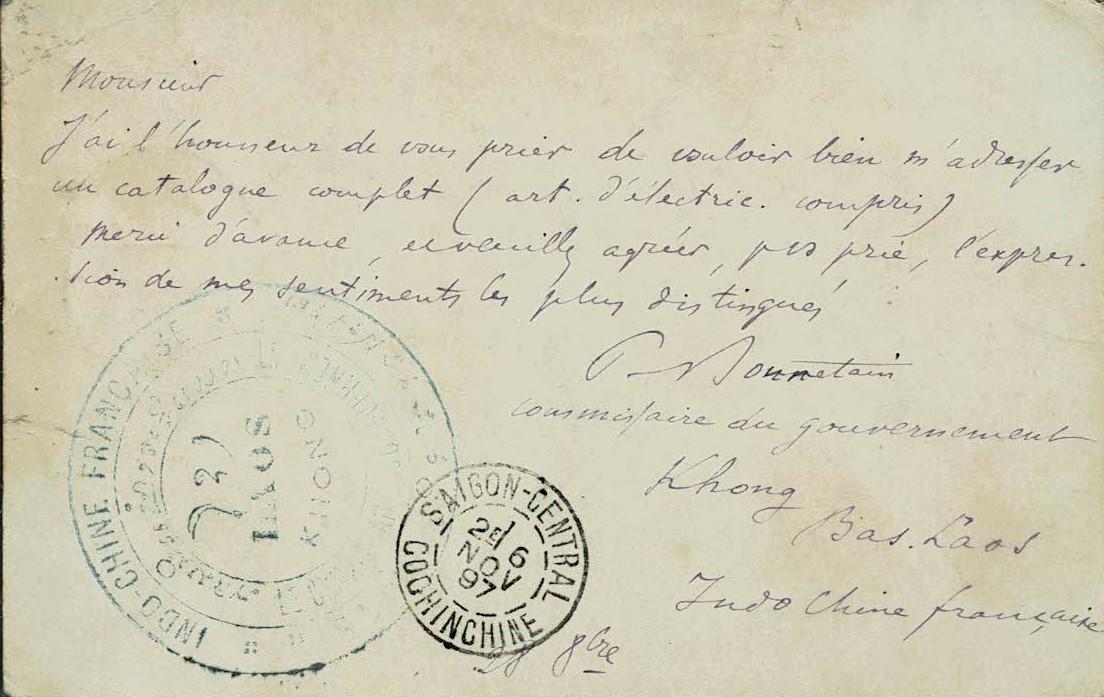 Monsieur
J'ai l'honneur de vous prier de vouloir bien m'adresser
un catalogue complet ( art. d'électric. compris)
Merci d'avance, et veuillez agréer, je vs prie, l'expres.
sion de mes sentiments les plus distingués
P. Bonnetain
commissaire du gouvernement
Khong
Bas.Laos
Indo Chine française
INDO-CHINE FRANÇAISE
LAOS
KHONG
SAIGON-CENTRAL
2E/6
NOV
97
COCHINCHINE
28 8bre